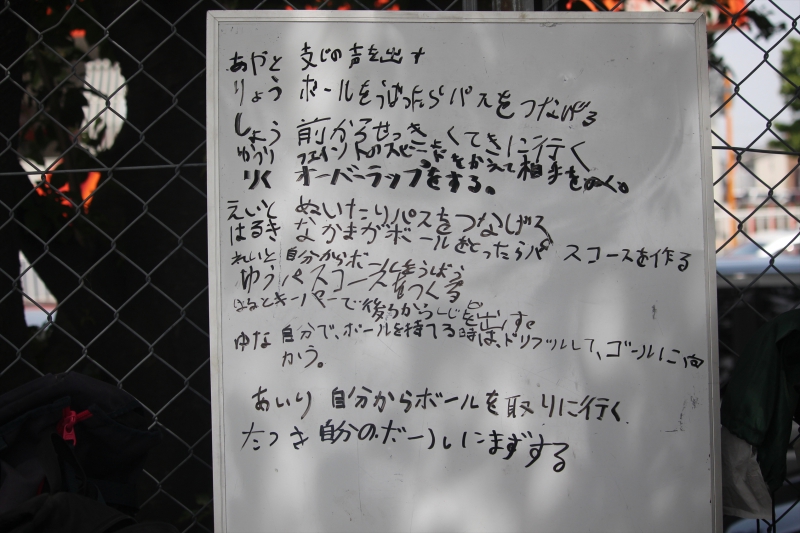 あやと 支じの声を出す
りょう ボールをうばったらパスをつなげる
しょう 前からせっきょくてきに行く
ゆうり フェイントやスピードをかえて相手をぬく。
りく オーバーラップをする。
えいと ぬいたりパスをつなげる
はるき なかまがボールをとったらパスコースを作る
れいと 自分からボールをうばう
ゆう パスコースをつくる
はると キーパーで後ろからしじを出す。
ゆな 自分で、ボールを持てる時は、ドリブルして、ゴールに向
かう。
あいり 自分からボールを取りに行く
たつき 自分のボールにまずする